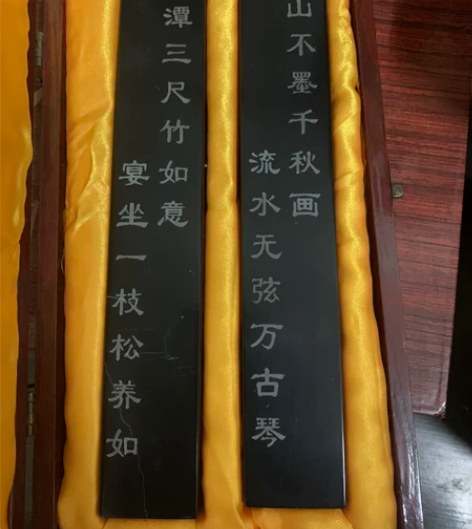 山不墨千秋画
流水无弦万古琴
潭三尺竹如意
宴坐一枝松养如